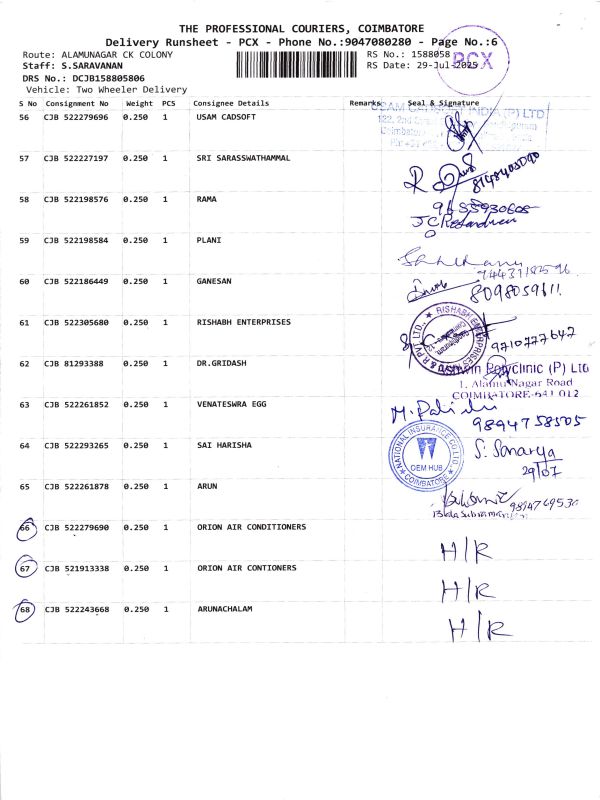 THE PROFESSIONAL COURIERS, COIMBATORE
Delivery Runsheet - PCX - Phone No.:9047080280 - Page No.:6
Route: ALAMUNAGAR CK COLONY
RS No.: 1588058
PCX
Staff: S.SARAVANAN
RS Date: 29-Jul-2025
DRS No.: DCJB158805806
Vehicle: Two Wheeler Delivery
S No Consignment No Weight PCS Consignee Details Remarks Seal & Signature
56 CJB 522279696 0.250 1 USAM CADSOFT
57 CJB 522227197 0.250 1 SRI SARASSWATHAMMAL
58 CJB 522198576 0.250 1 RAMA
59 CJB 522198584 0.250 1 PLANI
60 CJB 522186449 0.250 1 GANESAN
8098059611.
61 CJB 522305680 0.250 1 RISHABH ENTERPRISES
RISHABH ENTERPRISES
9710777647
62 CJB 81293388 0.250 1 DR.GRIDASH
Polyclinic (P) Ltd
1, Alamu Nagar Road
COIMBATORE-641 012
63 CJB 522261852 0.250 1 VENATESWRA EGG
9894758505
64 CJB 522293265 0.250 1 SAI HARISHA
NATIONAL INSURANCE CO.LTD.
OEM HUB
COIMBATORE
29/07
65 CJB 522261878 0.250 1 ARUN
66 CJB 522279690 0.250 1 ORION AIR CONDITIONERS
H/R
67 CJB 521913338 0.250 1 ORION AIR CONTIONERS
H/R
68 CJB 522243668 0.250 1 ARUNACHALAM
H/R